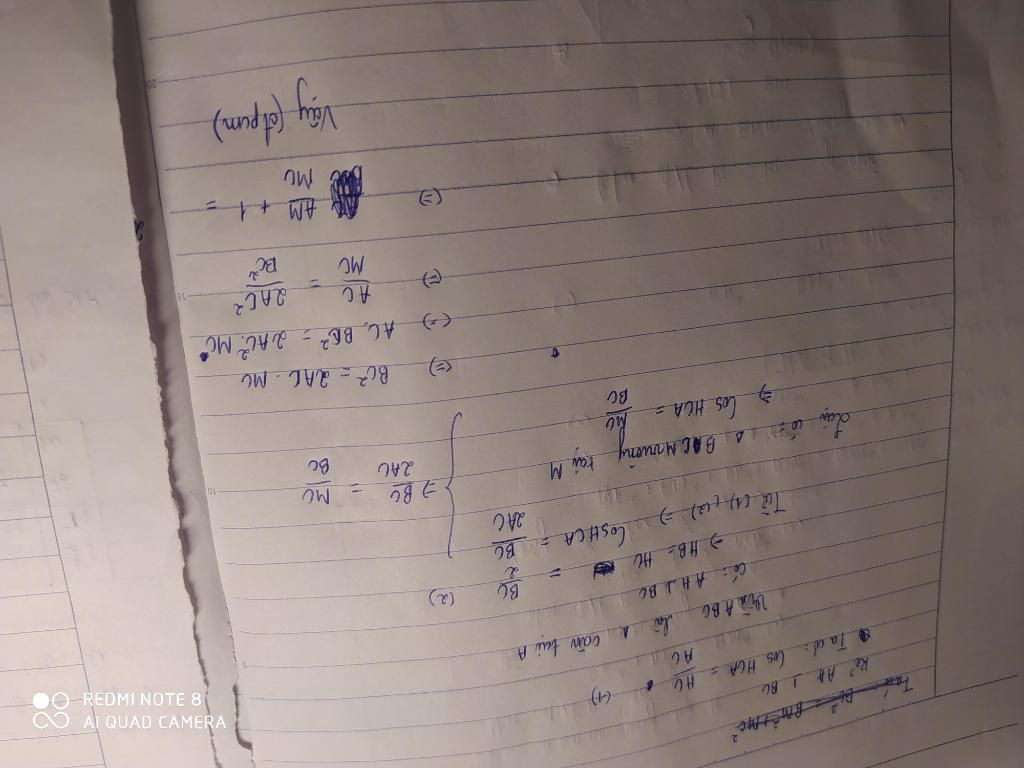 Ta có: BC² = BM² + MC²
Kẻ AH ⊥ BC
Ta có: Cos HCA = HC/AC (1)
Vì ABC là Δ cân tại A
Có: AH ⊥ BC
⇒ HB = HC = BC/2 (2)
Từ (1), (2) ⇒ Cos HCA = BC/2AC
Lại có: Δ BCM vuông tại M
⇒ Cos HCA = MC/BC
⇒ BC/2AC = MC/BC
(=) BC² = 2AC . MC
(=) AC. BC² = 2AC². MC
(=) AC/MC = 2AC²/BC²
(=) AM/MC + 1 =
Vậy (đpcm)
20
15
10
5
REDMI NOTE 8
AI QUAD CAMERA